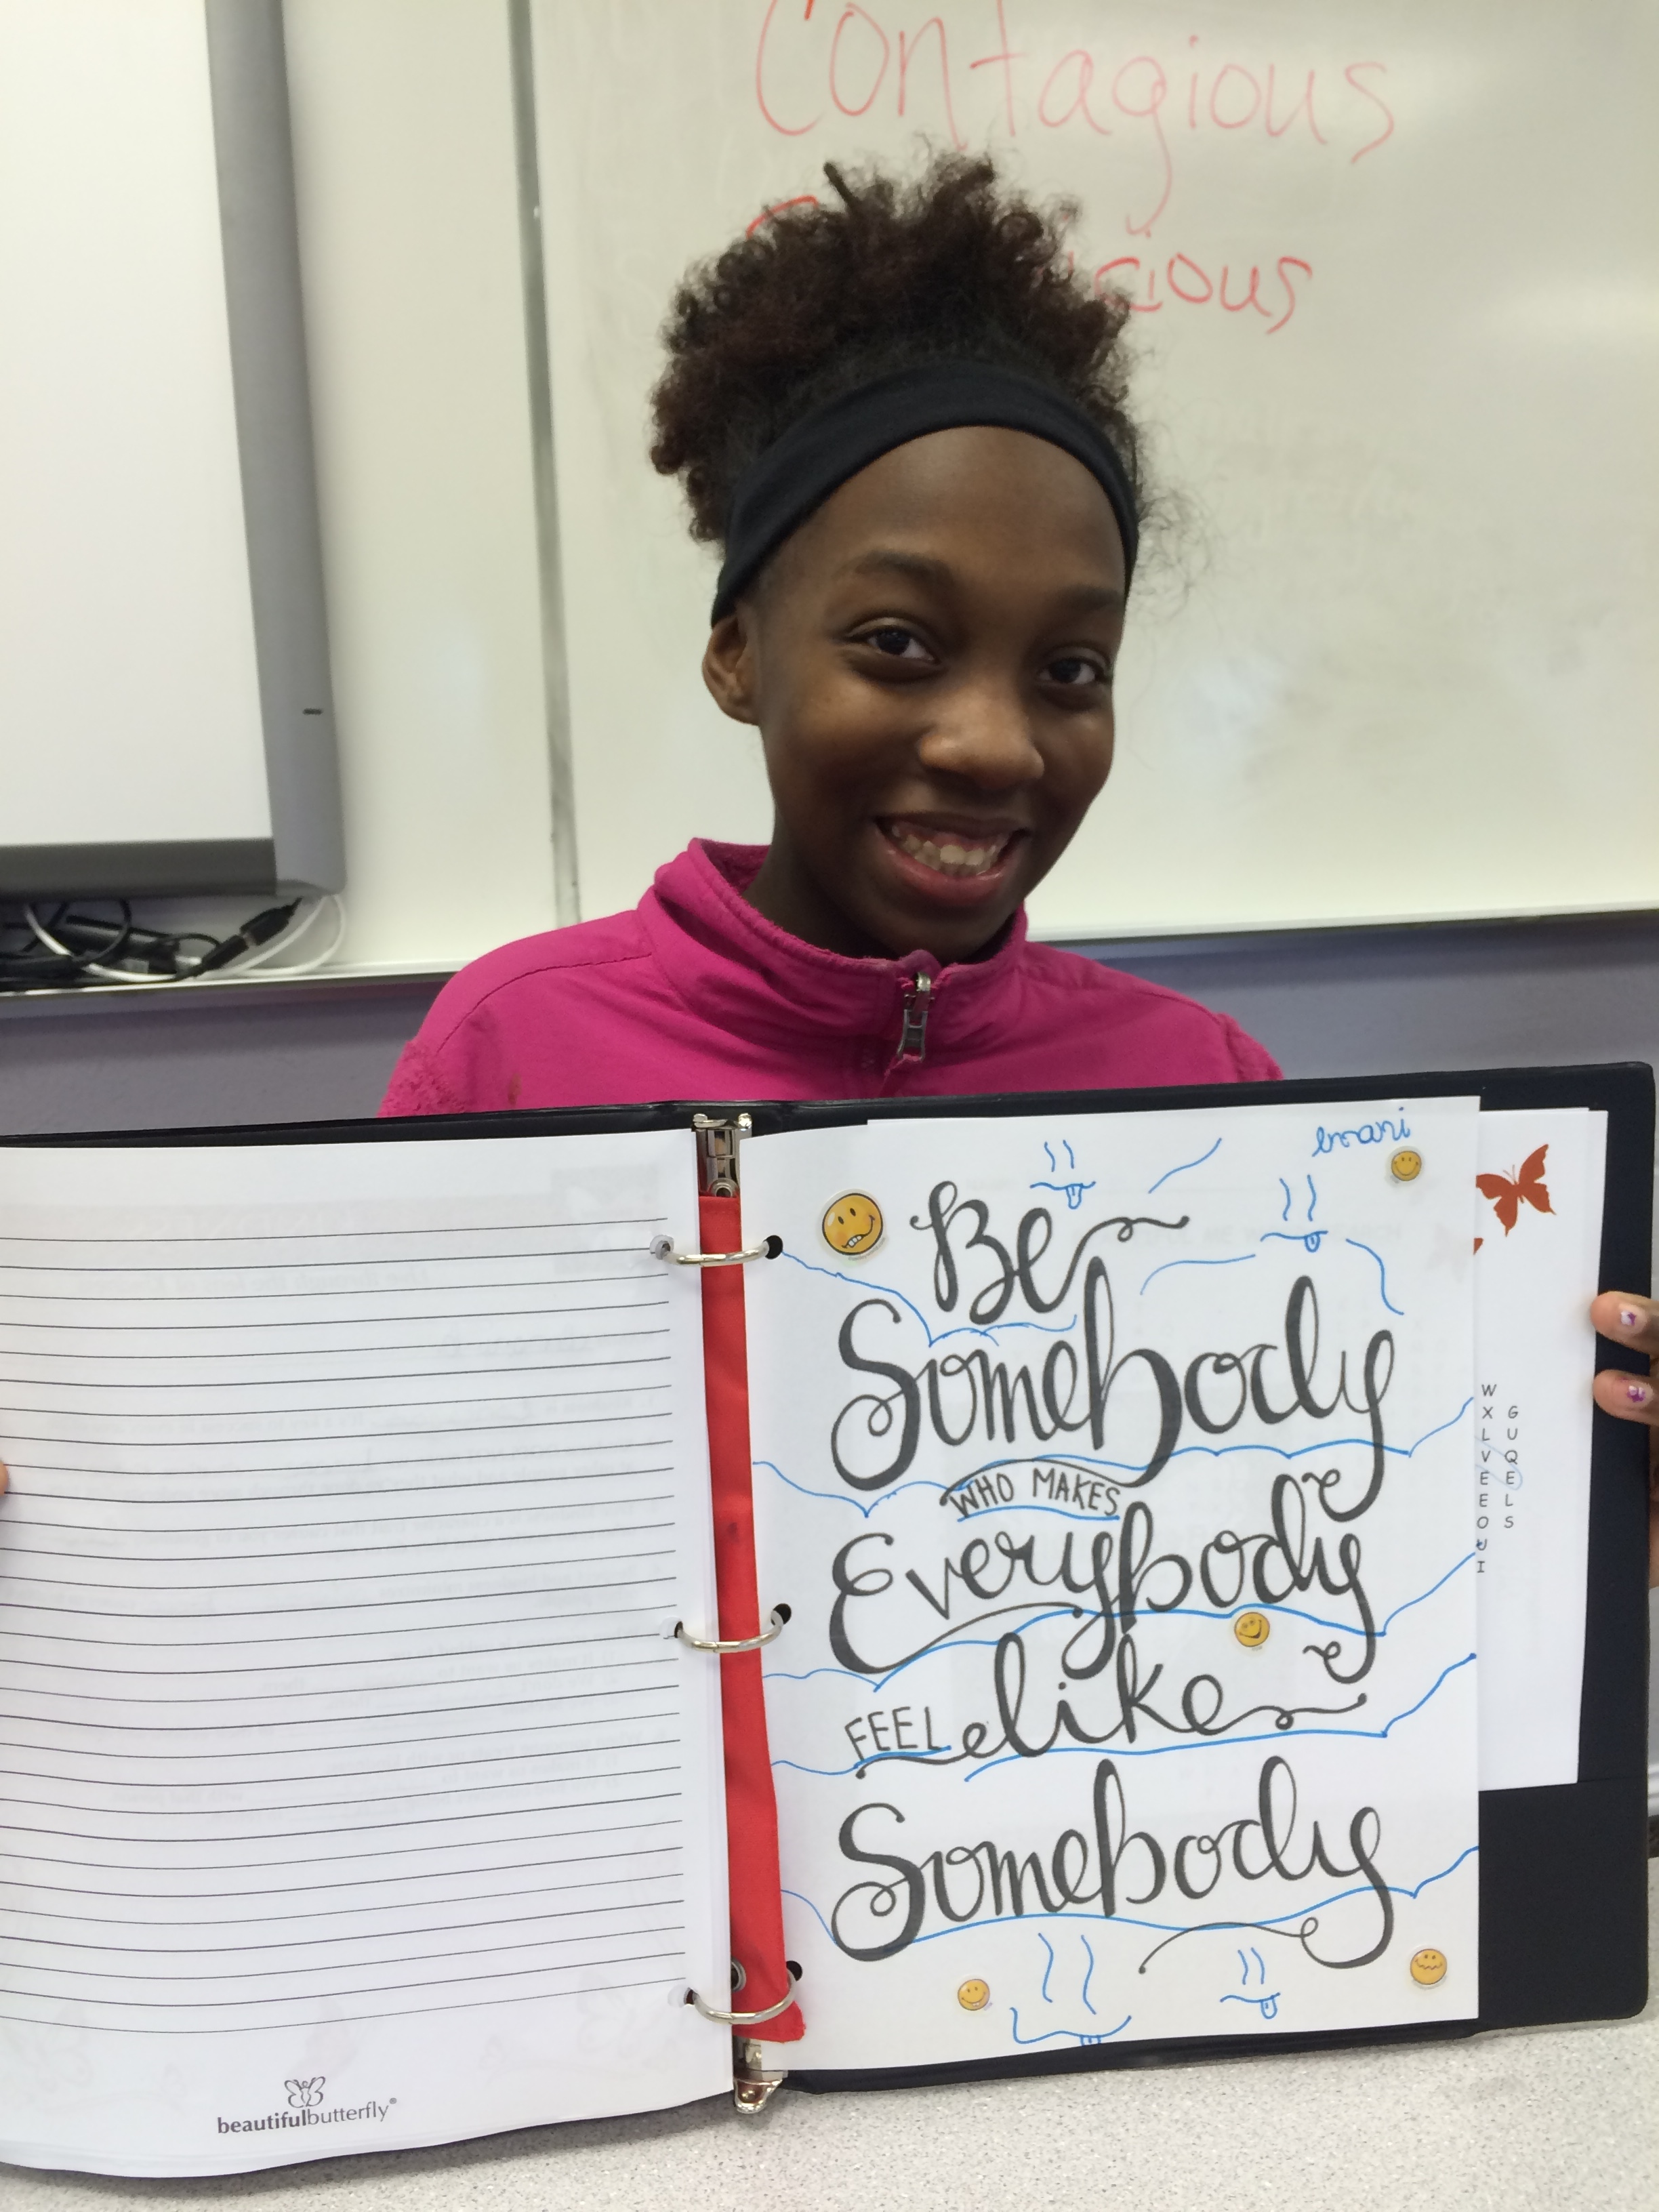 Contagious
emani
Be
Somebody
WHO MAKES
Everybody
FEEL like
Somebody
W
X G
L U
V Q
E E
E L
O S
U
I
beautifulbutterfly®